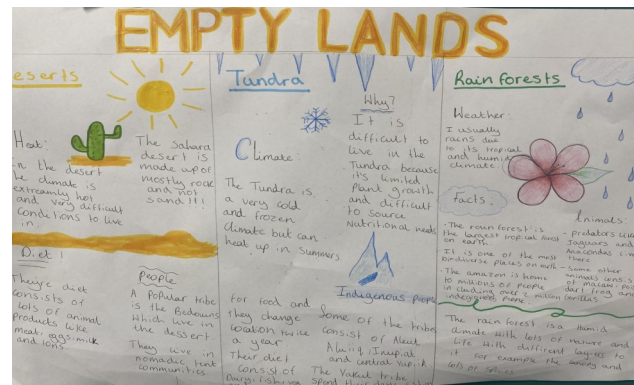 EMPTY LANDS
eserts
Heat:
in the desert
he climate is
extreamly hot
and very difficult
conditions to live
in.
The Sahara
desert is
made up of
mostly rock
and not
sand!!!
Diet!
Theire diet
consists of
lots of animal
products like
meat, eggs, milk
and
People
A Popular tribe
is the Bedouins
Which live in
the dessert
They live in
nomadic tent
communities.
Tundra
Climate:
The Tundra is
a very cold
and frozen
climate but can
heat up in Summers
Why?
It is
difficult to
live in the
Tundra because
it's limited
plant growth
and difficult
to source
nutritional needs
Indigenous people
For food and
they change
location twice
a year
Their diet
consist of
fishing
Some of the tribes
consist of Aleut
Alutiiq, Inupiat
and central Yup'ik
The Yakut tribe
spend their
Rainforests
Weather:
I usually
rains due
to its tropical
and humid
climate.
facts.
- The rainforest is
the largest tropical forest
on earth
It is one of the most
biodiverse places on earth
- The amazon is home
to millions of people
including over 2 million
indegenous
Animals:
- predators like
Jaguars and
Anacondas live
there
- Some other
animals consist
of macaw, poison
dart frog and
Gorillas
The rain forest is a Humid
climate with lots of nature and
life with different layers to
it for example the
lots of